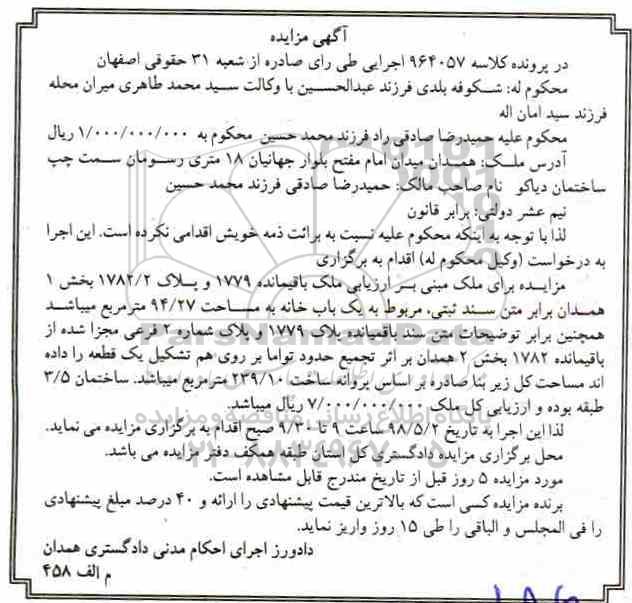 آگهی مزایده
در پرونده کلاسه ۹۶۴۰۵۷ اجرایی طی رای صادره از شعبه ۳۱ حقوقی اصفهان
محکوم له: شکوفه بلدی فرزند عبدالحسین با وکالت سید محمد طاهری میران محله
فرزند سید امان اله
محکوم علیه حمیدرضا صادقی راد فرزند محمد حسین محکوم به ۱/۰۰۰/۰۰۰/۰۰۰ ریال
آدرس ملک: همدان میدان امام مفتح بلوار جهانیان ۱۸ متری رسومان سمت چپ
ساختمان دیاکو نام صاحب مالک: حمیدرضا صادقی فرزند محمد حسین
نیم عشر دولتی: برابر قانون
لذا با توجه به اینکه محکوم علیه نسبت به برائت ذمه خویش اقدامی نکرده است. این اجرا
به درخواست (وکیل محکوم له) اقدام به برگزاری
مزایده برای ملک مبنی بر ارزیابی ملک باقیمانده ۱۷۷۹ و پلاک ۱۷۸۲/۲ بخش ۱
همدان برابر متن سند ثبتی، مربوط به یک باب خانه به مساحت ۹۴/۲۷ مترمربع میباشد
همچنین برابر توضیحات متن سند باقمیانده پلاک ۱۷۷۹ و پلاک شماره ۲ فرعی مجزا شده از
باقیمانده ۱۷۸۲ بخش ۲ همدان بر اثر تجمیع حدود تواما بر روی هم تشکیل یک قطعه را داده
اند مساحت کل زیر بنا صادره بر اساس پروانه ساخت ۲۳۹/۱۰ مترمربع میباشد. ساختمان ۳/۵
طبقه بوده و ارزیابی کل ملک ۷/۰۰۰/۰۰۰/۰۰۰ ریال میباشد.
لذا این اجرا به تاریخ ۹۸/۵/۲ ساعت ۹ تا ۹/۳۰ صبح اقدام به برگزاری مزایده می نماید.
محل برگزاری مزایده دادگستری کل استان طبقه همکف دفتر مزایده می باشد.
مورد مزایده ۵ روز قبل از تاریخ مندرج قابل مشاهده است.
برنده مزایده کسی است که بالاترین قیمت پیشنهادی را ارائه و ۴۰ درصد مبلغ پیشنهادی
را فی المجلس و الباقی را طی ۱۵ روز واریز نماید.
دادورز اجرای احکام مدنی دادگستری همدان
م الف ۴۵۸
ParsNamadData
پایگاه اطلاع رسانی مناقصه و مزایده